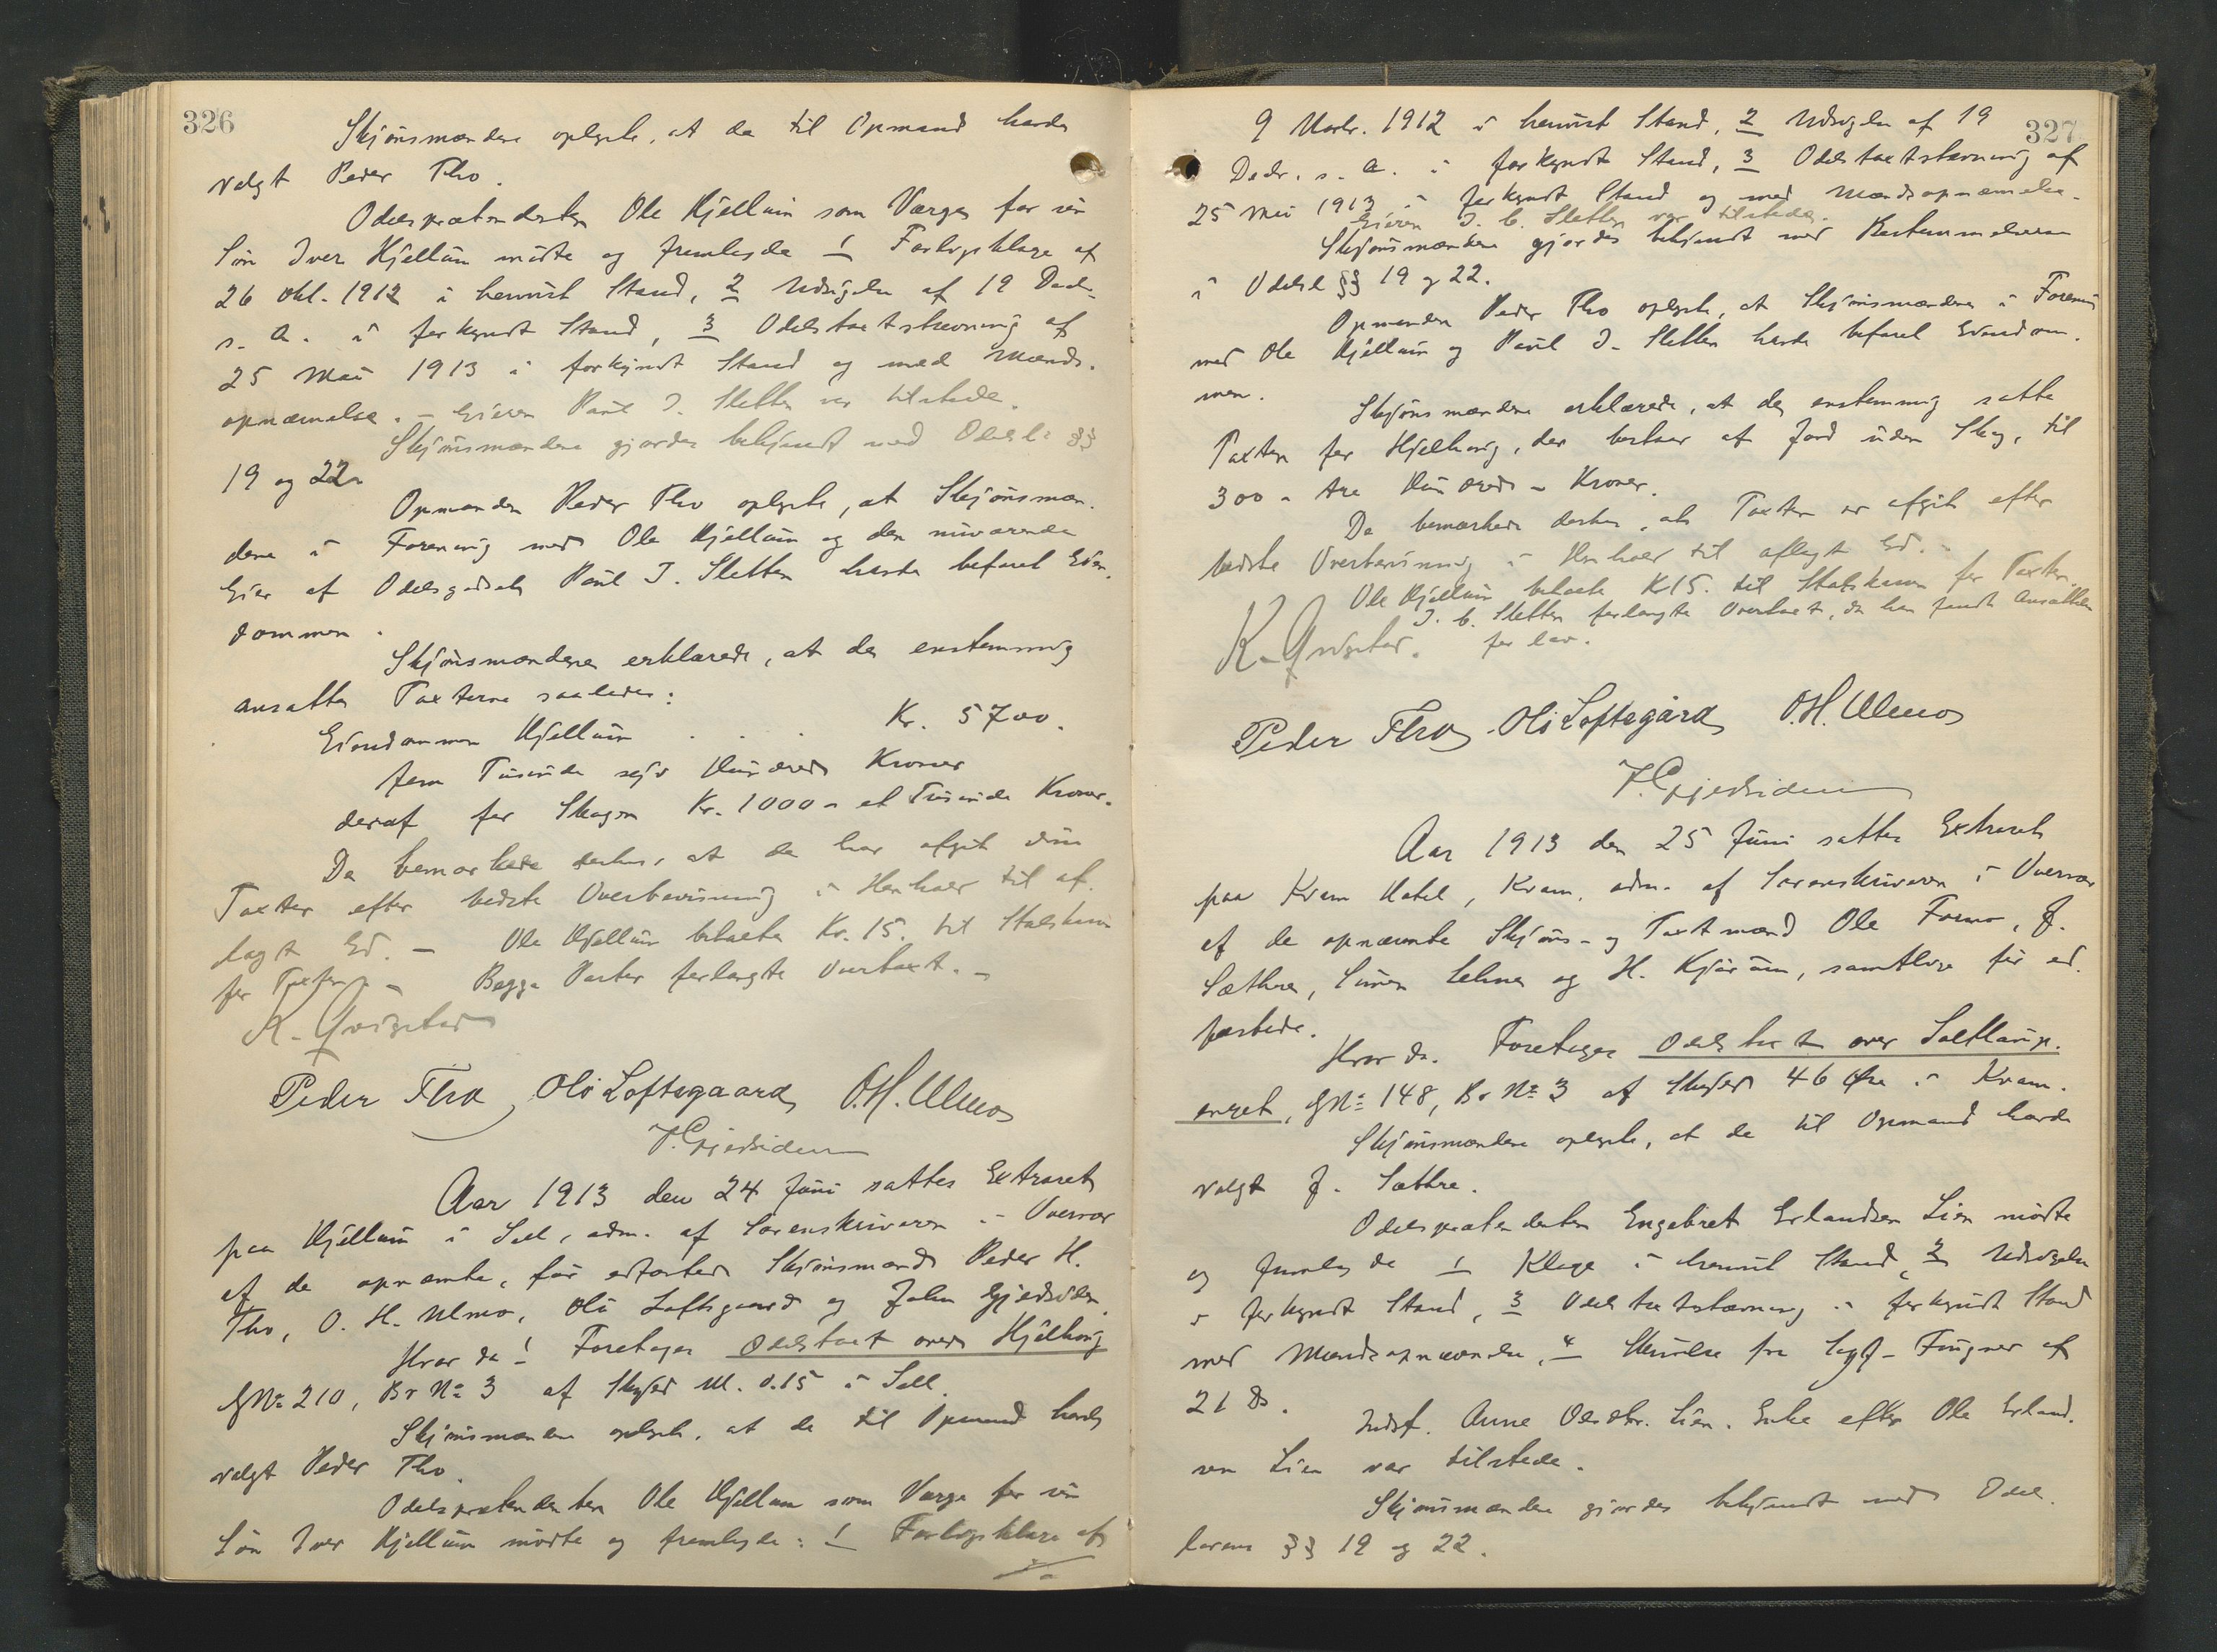 326
Skjønsmændene oplyste, at de til Opmand havde
valgt Peder Tho.
Odelsprætendenten Ole Kjellum som Værge for sin
Søn Iver Kjellum mødte og fremlagde 1 Forligsklage af
26 Okt. 1912 i henvist Stand, 2 Udsigelse af 19 Decbr.
s. A. i forkyndt Stand, 3 Odelstaxtstevning af
25 Mai 1913 i forkyndt Stand og med Mands-
opnævnelse. - Eieren Paul I. Sletten var tilstede.
Skjønsmændene gjordes bekjendt med Odelsl. §§
19 og 22.
Opmanden Peder Tho oplyste, at Skjønsmæn-
dene i Forening med Ole Kjellum og den nuværende
Eier af Odelsgodset Paul I. Sletten havde befaret Eien-
dommen.
Skjønsmændene erklærede, at de enstemmig
ansatte Taxterne saaledes:
Eiendommen Kjellum . . . Kr. 5700.
fem Tusinde syv Hundrede Kroner
deraf for Skogen Kr. 1000 - et Tusinde Kroner.
De bemærkede derhos, at de har afgit sin
Taxter efter bedste Overbevisning i Henhold til af-
lagt Ed. - Ole Kjellum betalte Kr. 15. til Statskassen
for Taxten. - Begge Parter forlangte Overtaxt. -
K. Qvigstad
Peder Tho, Ole Loftsgaard, O. H. Ulmo
J. Gjedsiden
Aar 1913 den 24 Juni sattes Extraret
paa Kjellum i Sel, adm. af Sorenskriveren i Overvær
af de opnævnte, før edfæstede Skjønsmænd Peder H.
Tho, O. H. Ulmo, Ole Loftsgaard og John Gjedsiden.
Hvor da! Foretoges Odelstaxt over Hjelhaug
GNo 210, Br No 3 af Skyld M. 0.15 i Sell.
Skjønsmændene oplyste, at de til Opmand havde
valgt Peder Tho.
Odelsprætendenten Ole Kjellum som Værge for sin
Søn Iver Kjellum mødte og fremlagde: 1 Forligsklage af
327
9 Novbr. 1912 i henvist Stand, 2 Udsigelse af 19
Decbr. s. A. i forkyndt Stand, 3 Odelstaxtstævning af
25 Mai 1913 i forkyndt Stand og med Mandsopnævnelse.
Eieren I. C. Sletten var tilstede.
Skjønsmændene gjordes bekjendt med Bestemmelserne
i Odelsl. §§ 19 og 22.
Opmanden Peder Tho oplyste, at Skjønsmændene i Forening
med Ole Kjellum og Paul I. Sletten havde befaret Eiendom-
men.
Skjønsmændene erklærede, at de enstemmig satte
Taxten for Hjelhaug, der bestaar af Jord uden Skog, til
300 - tre Hundrede - Kroner.
De bemærkede derhos, at Taxten er afgit efter
bedste Overbevisning i Henhold til aflagt Ed. -
Ole Kjellum betalte Kr 15. til Statskassen for Taxten.
I. C. Sletten forlangte Overtaxt, da han fandt Ansættelsen
for lav.
K. Qvigstad.
Peder Tho, Ole Loftsgård, O. H. Ulmo
J. Gjedsiden
Aar 1913 den 25 Juni sattes Extraret
paa Kvam Hotel, Kvam, adm. af Sorenskriveren i Overvær
af de opnævnte Skjøns- og Taxtmænd Ole Formo, J.
Sæthre, Simen Lehne og H. Kjørum, samtlige før ed-
fæstede.
Hvor da. Foretoges Odelstaxt over
GNo 148, Br No 3 af Skyld 46 Øre i Kvam.
Skjønsmændene oplyste, at de til Opmand havde
valgt J. Sæthre.
Odelsprætendenten Engebret Erlandsen Lien mødte
og fremlagde 1 Klage i henvist Stand, 2 Udsigelse
i forkyndt Stand, 3 Odelstaxtstævning i forkyndt Stand
med Mandsopnævnelse, 4 Skrivelse fra Sagf. Fougner af
21 ds.
Indst. Anne Olsdtr. Lien, Enke efter Ole Erland-
sen Lien var tilstede.
Skjønsmændene gjordes bekjendt med Odels-
lovens §§ 19 og 22.